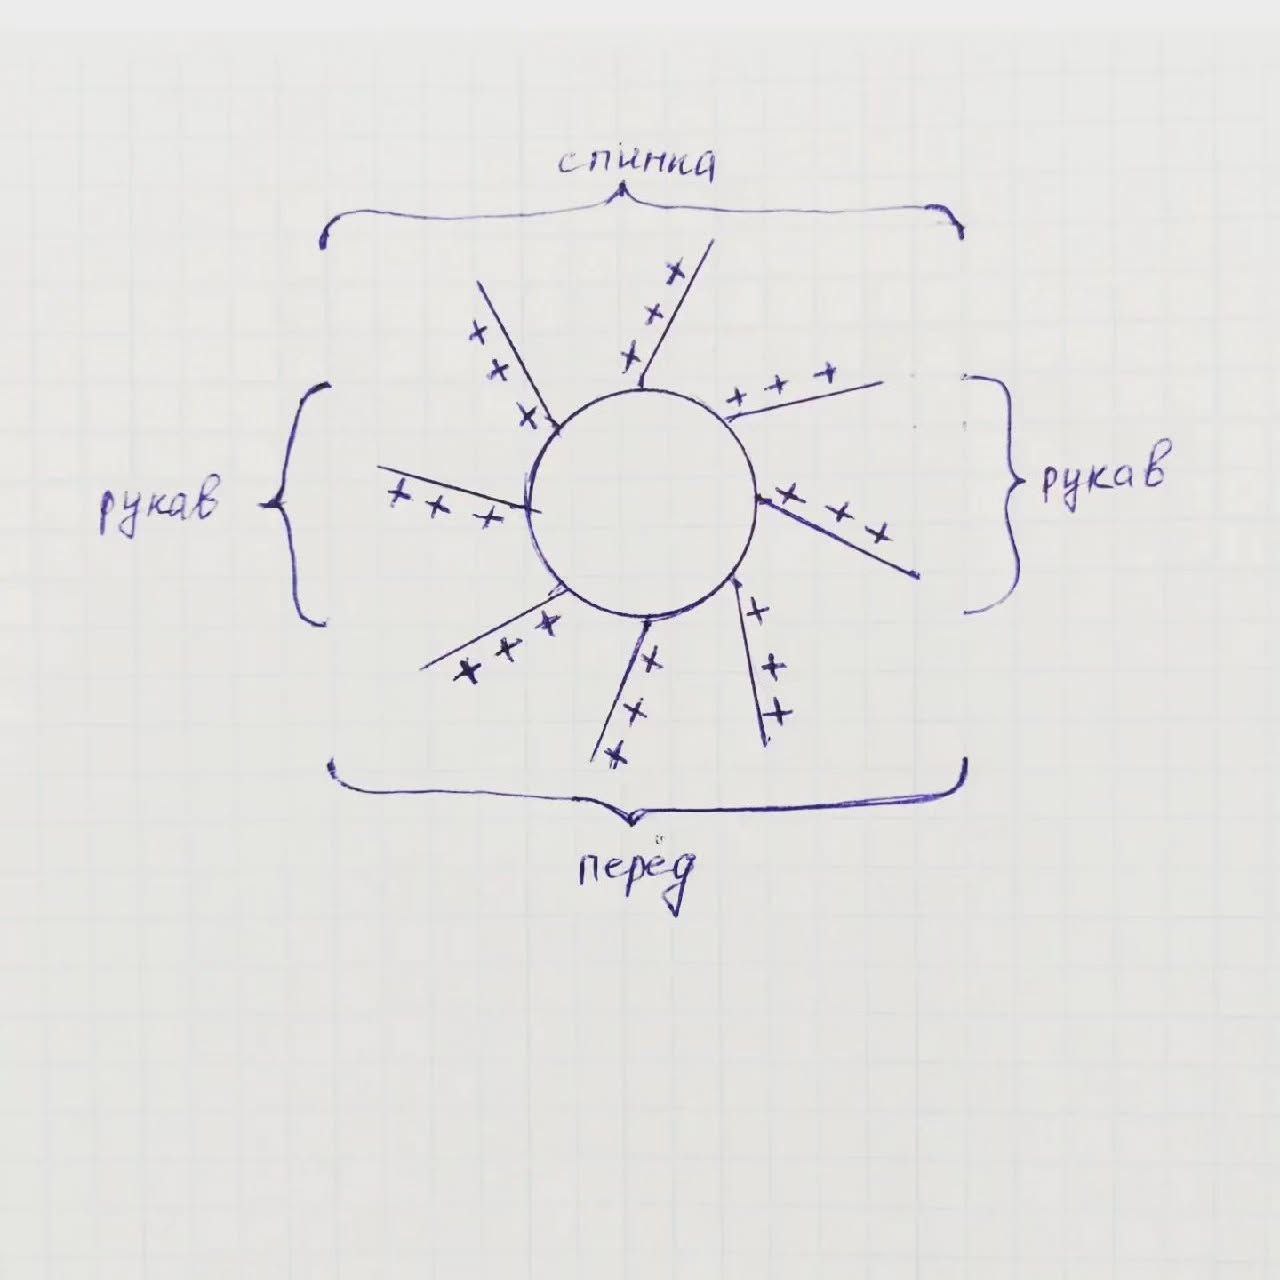 спинка
рукав
рукав
перёд